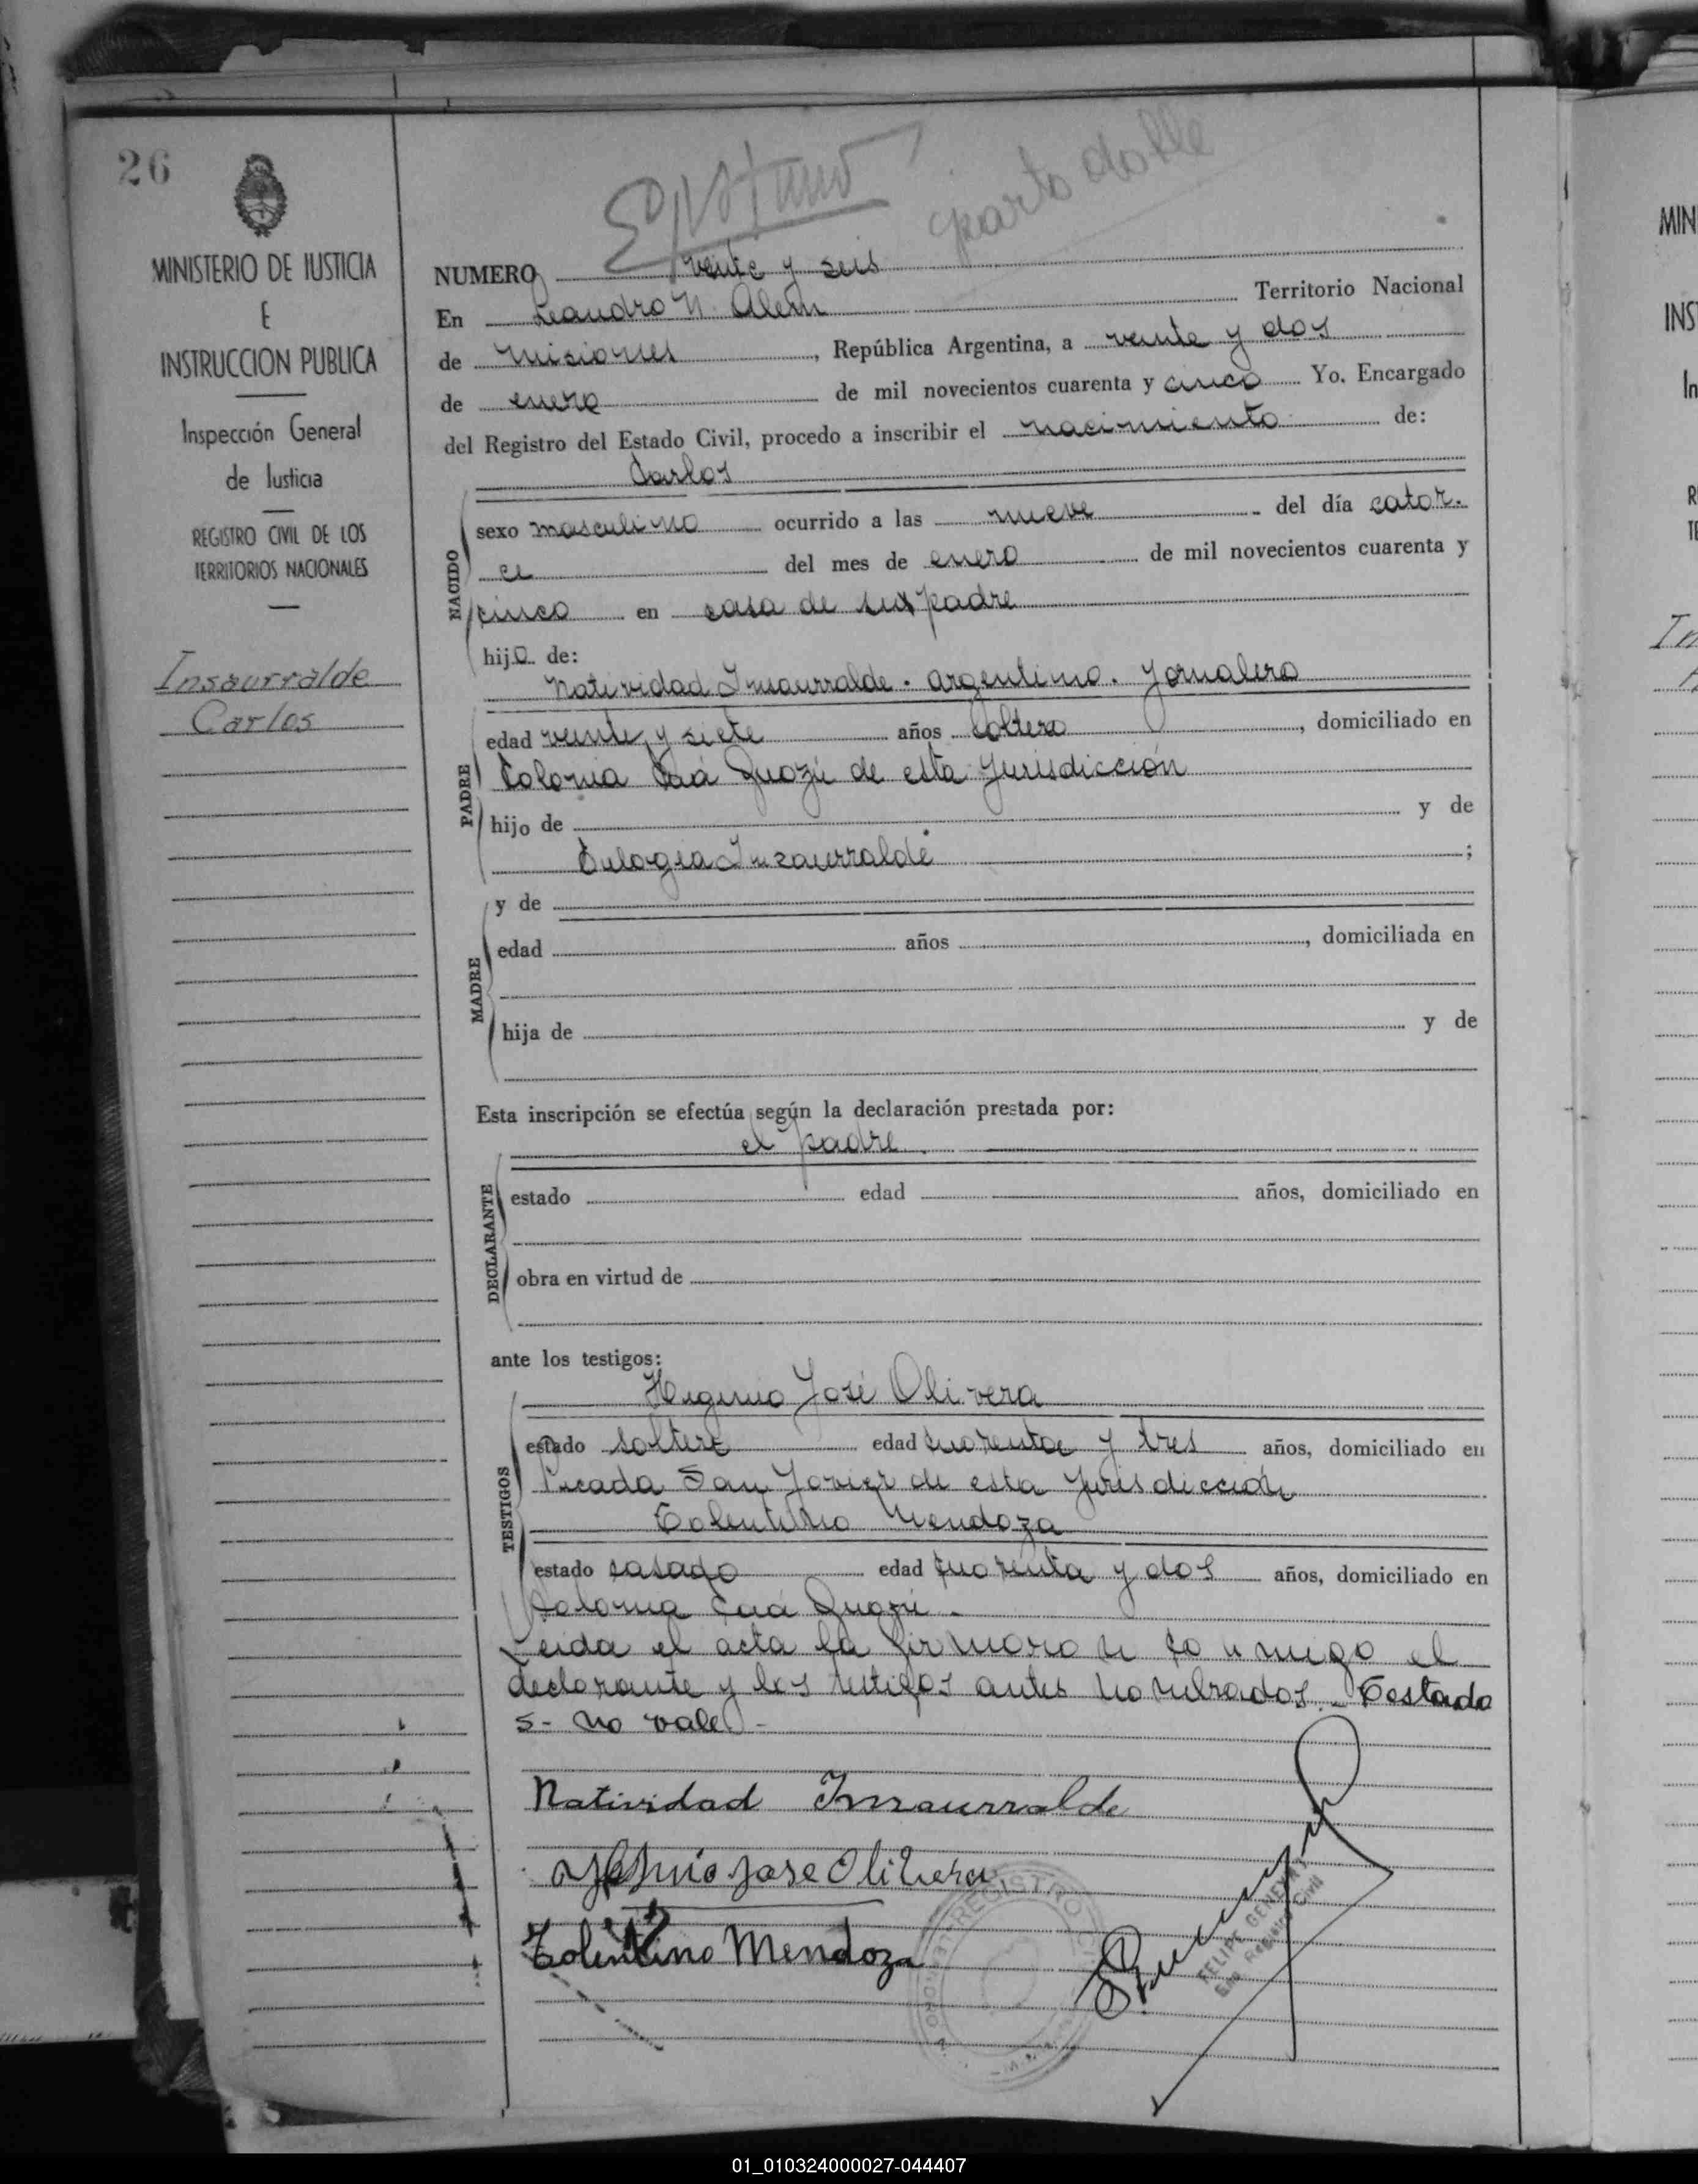 26
parto doble
MINISTERIO DE JUSTICIA
E
INSTRUCCION PUBLICA
Inspección General
de Justicia
REGISTRO CIVIL DE LOS
TERRITORIOS NACIONALES
Insaurralde
Carlos
NUMERO veinte y seis
En Leandro N. Alem Territorio Nacional
de Misiones, República Argentina, a veinte y dos
de enero de mil novecientos cuarenta y cinco Yo. Encargado
del Registro del Estado Civil, procedo a inscribir el nacimiento de:
Carlos
NACIDO
sexo masculino ocurrido a las nueve del día cator-
ce del mes de enero de mil novecientos cuarenta y
cinco en casa de sus padre
hijo de:
Natividad Insaurralde. argentino. Jornalero
PADRE
edad veinte y siete años soltero, domiciliado en
Colonia Caá Guazú de esta Jurisdicción
hijo de y de
Eulogia Insaurralde;
MADRE
y de
edad años, domiciliada en
hija de y de
Esta inscripción se efectúa según la declaración prestada por:
el padre.
DECLARANTE
estado edad años, domiciliado en
obra en virtud de
ante los testigos:
TESTIGOS
Higinio José Olivera
estado soltero edad cuarenta y tres años, domiciliado en
Picada San Javier de esta Jurisdicción
Tolentino Mendoza
estado casado edad cuarenta y dos años, domiciliado en
Colonia Caá Guazú.
Leida el acta la firmaron conmigo el
declarante y los testigos antes nombrados. Testado
s- no vale-
Natividad Insaurralde
José Olivera
Tolentino Mendoza
REGISTRO
FELIPE
Enc. Registro Civil
MIN
INS
In
01_010324000027-044407